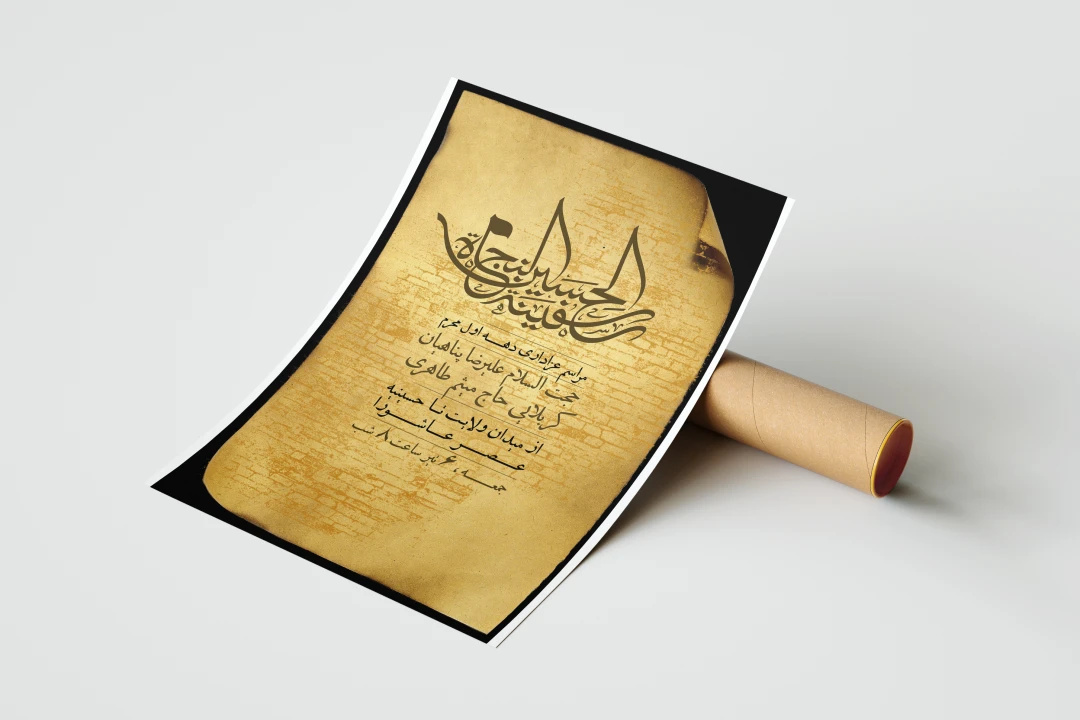 الحسین سفینة النجاة
مراسم عزاداری دهه اول محرم
حجت السلام علیرضا پناهیان
کربلایی حاج میثم طاهری
از میدان ولایت تا حسینیه
عصر عاشورا
جمعه، ۶ تیر ساعت ۸ شب